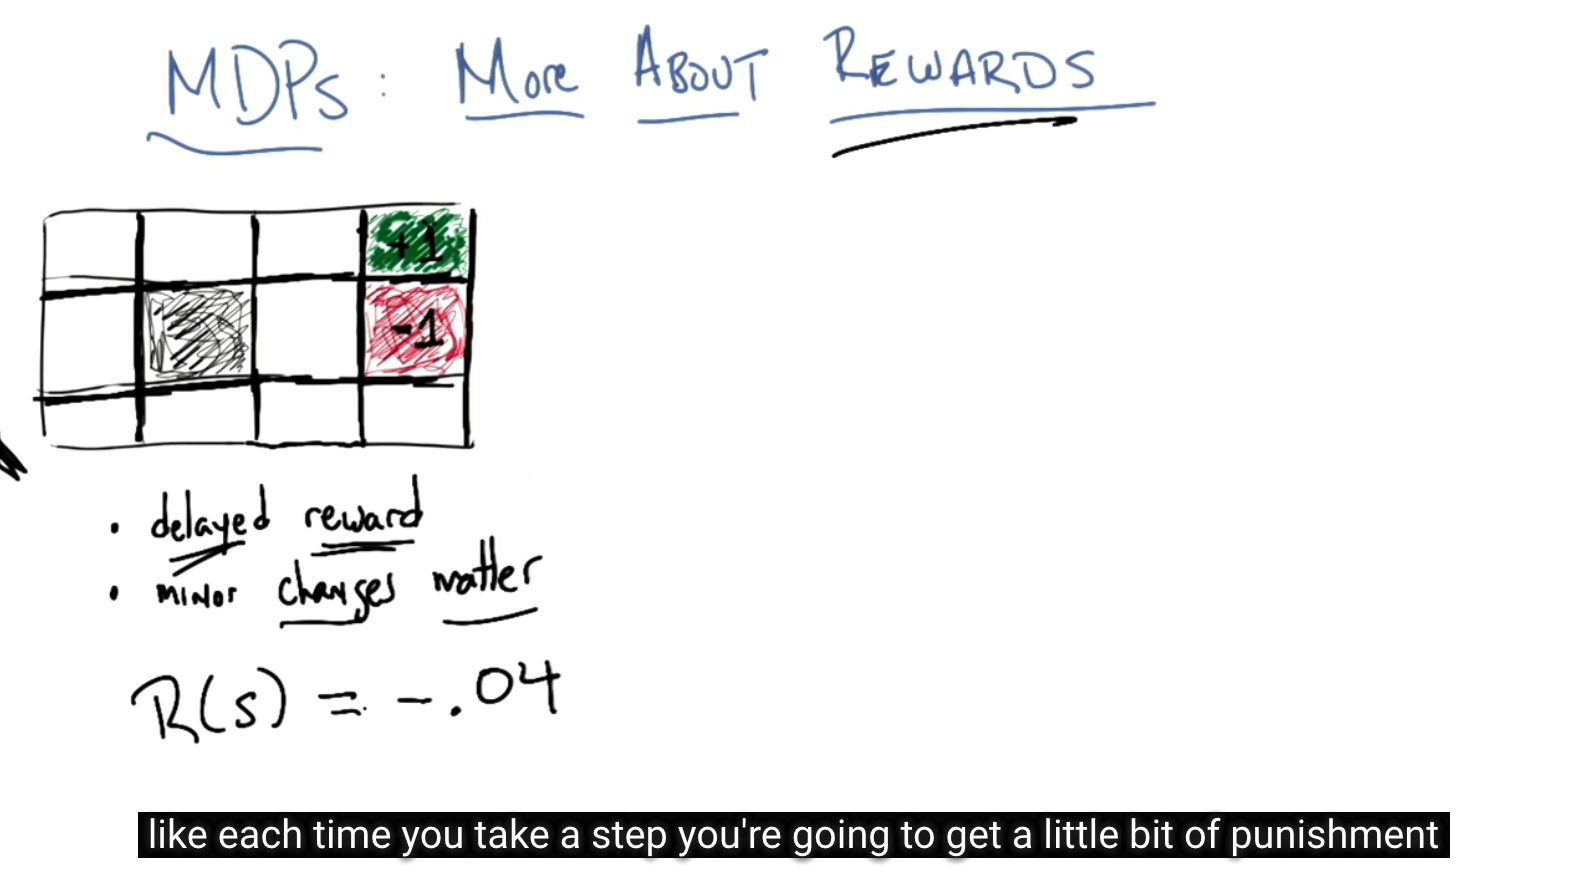 MDPs: More About Rewards
+1
-1
• delayed reward
• minor changes matter
R(s) = -.04
like each time you take a step you're going to get a little bit of punishment